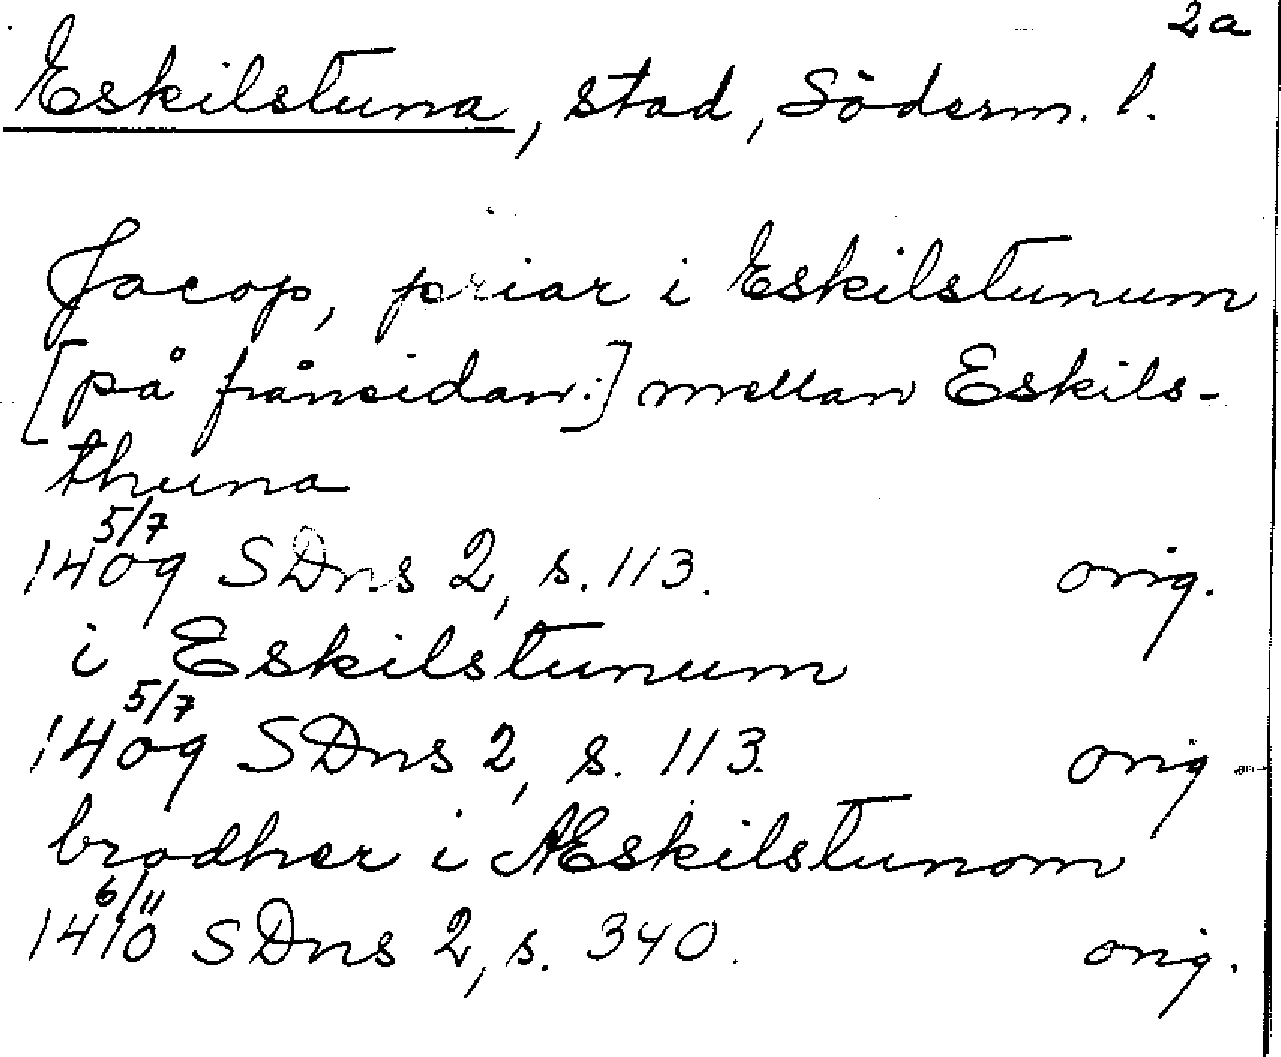 2a
Eskilstuna, stad, Söderm. l.
Jacop, priar i Eskilstunum
[på frånsidan:] mellan Eskils-
thuna
5/7
1409 SDns 2, s. 113. orig.
i Eskilstunum
5/7
1409 SDns 2, s. 113. orig
brodher i Æskilstunom
6/11
1410 SDns 2, s. 340. orig.